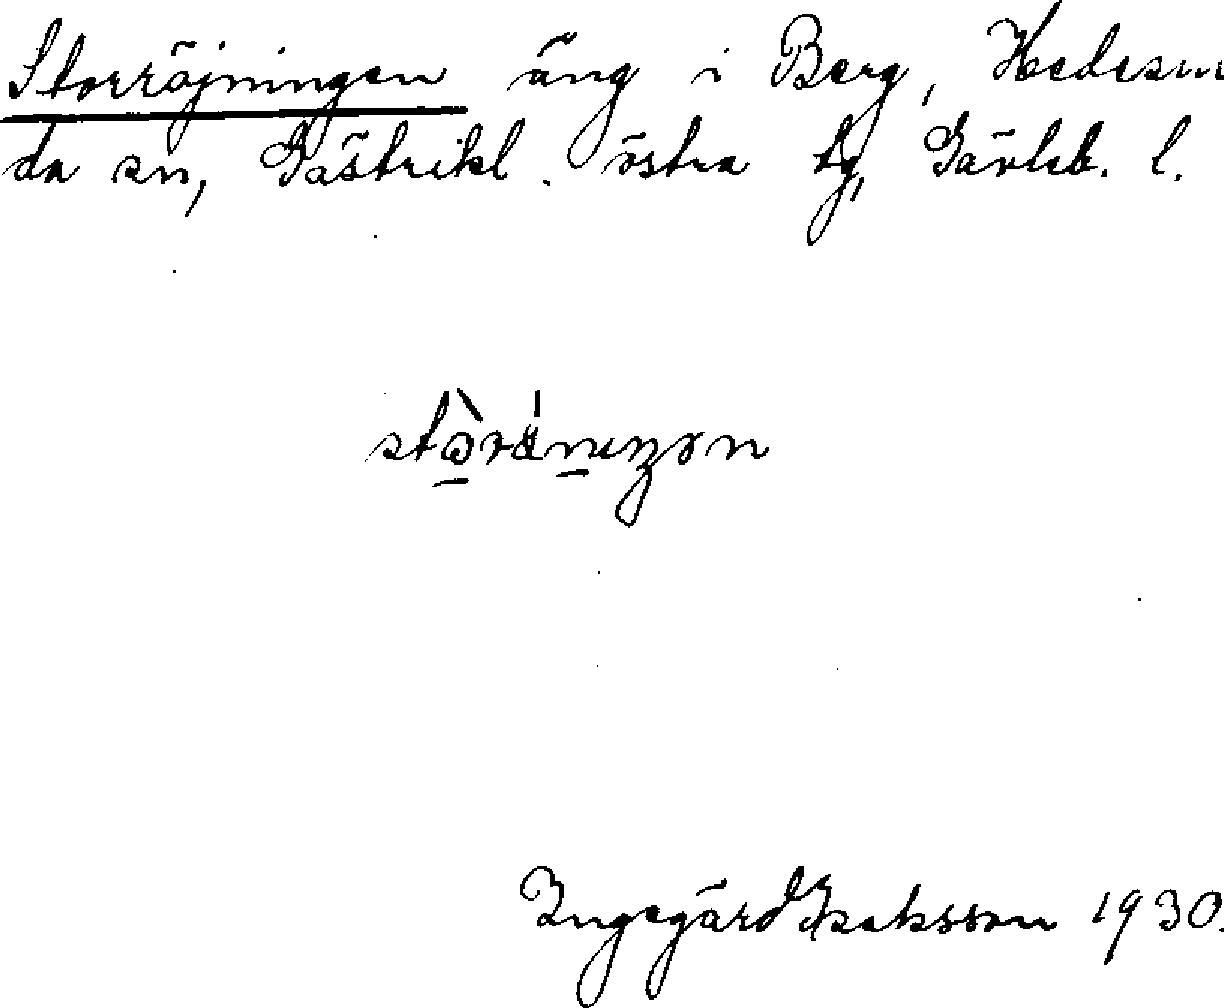 Storröjningen äng i Berg, Hedesun
da sn, Gästrikl. östra tg, Gävleb. l.
Ingegärd Isaksson 1930.